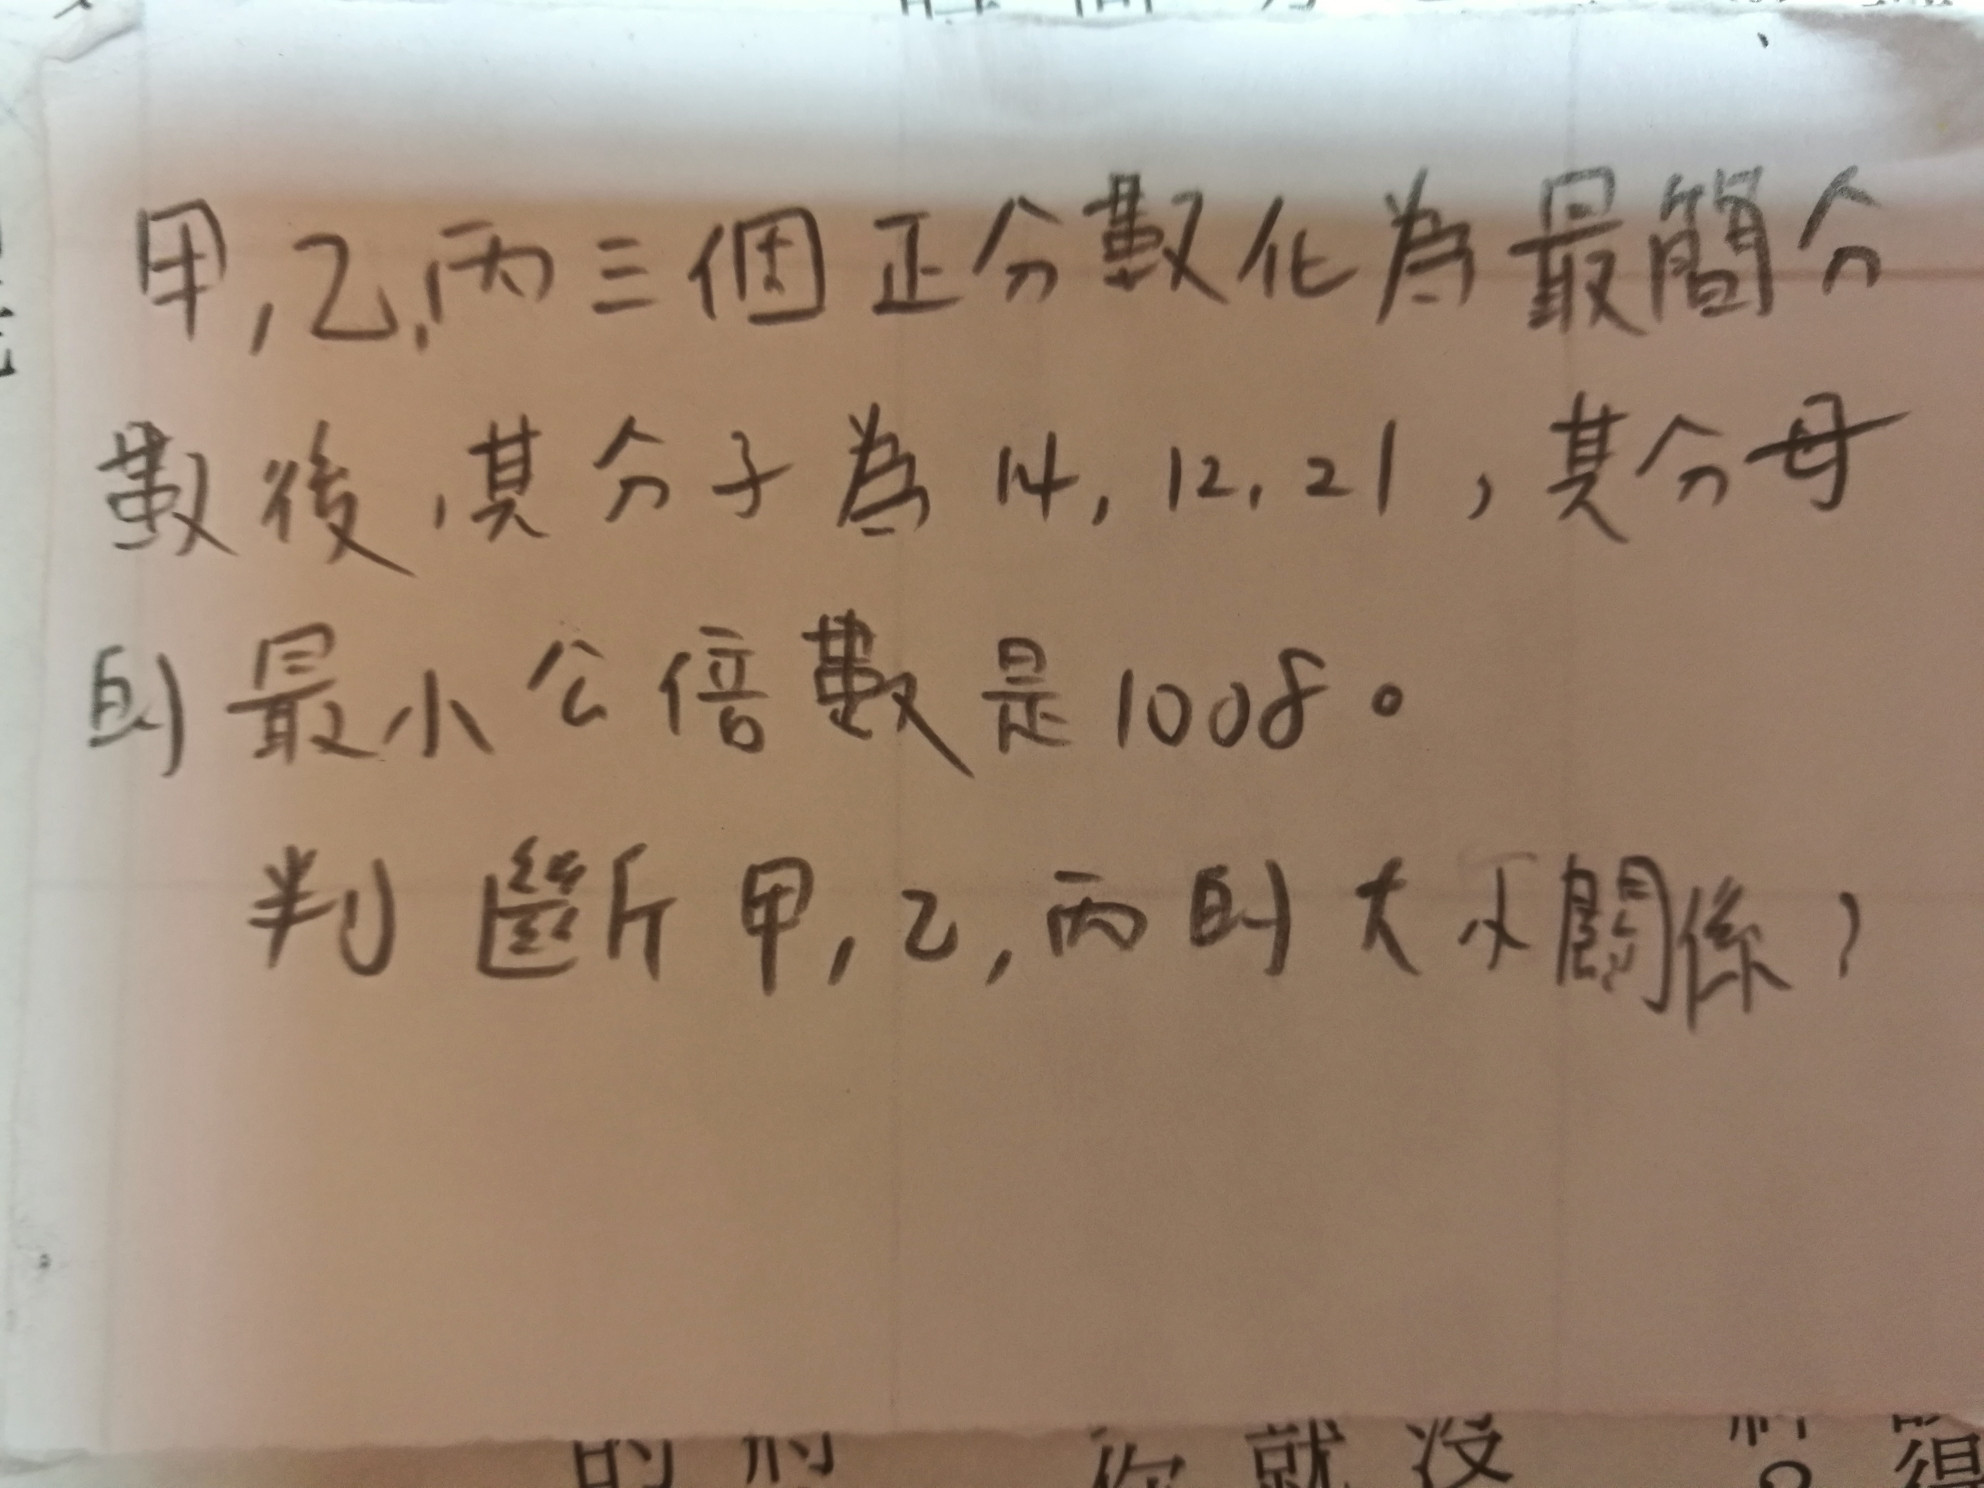 甲,乙,丙三個正分數化為最簡分
數後,其分子為14,12,21,其分母
的最小公倍數是1008。
判斷甲,乙,丙的大小關係?
你就沒
得